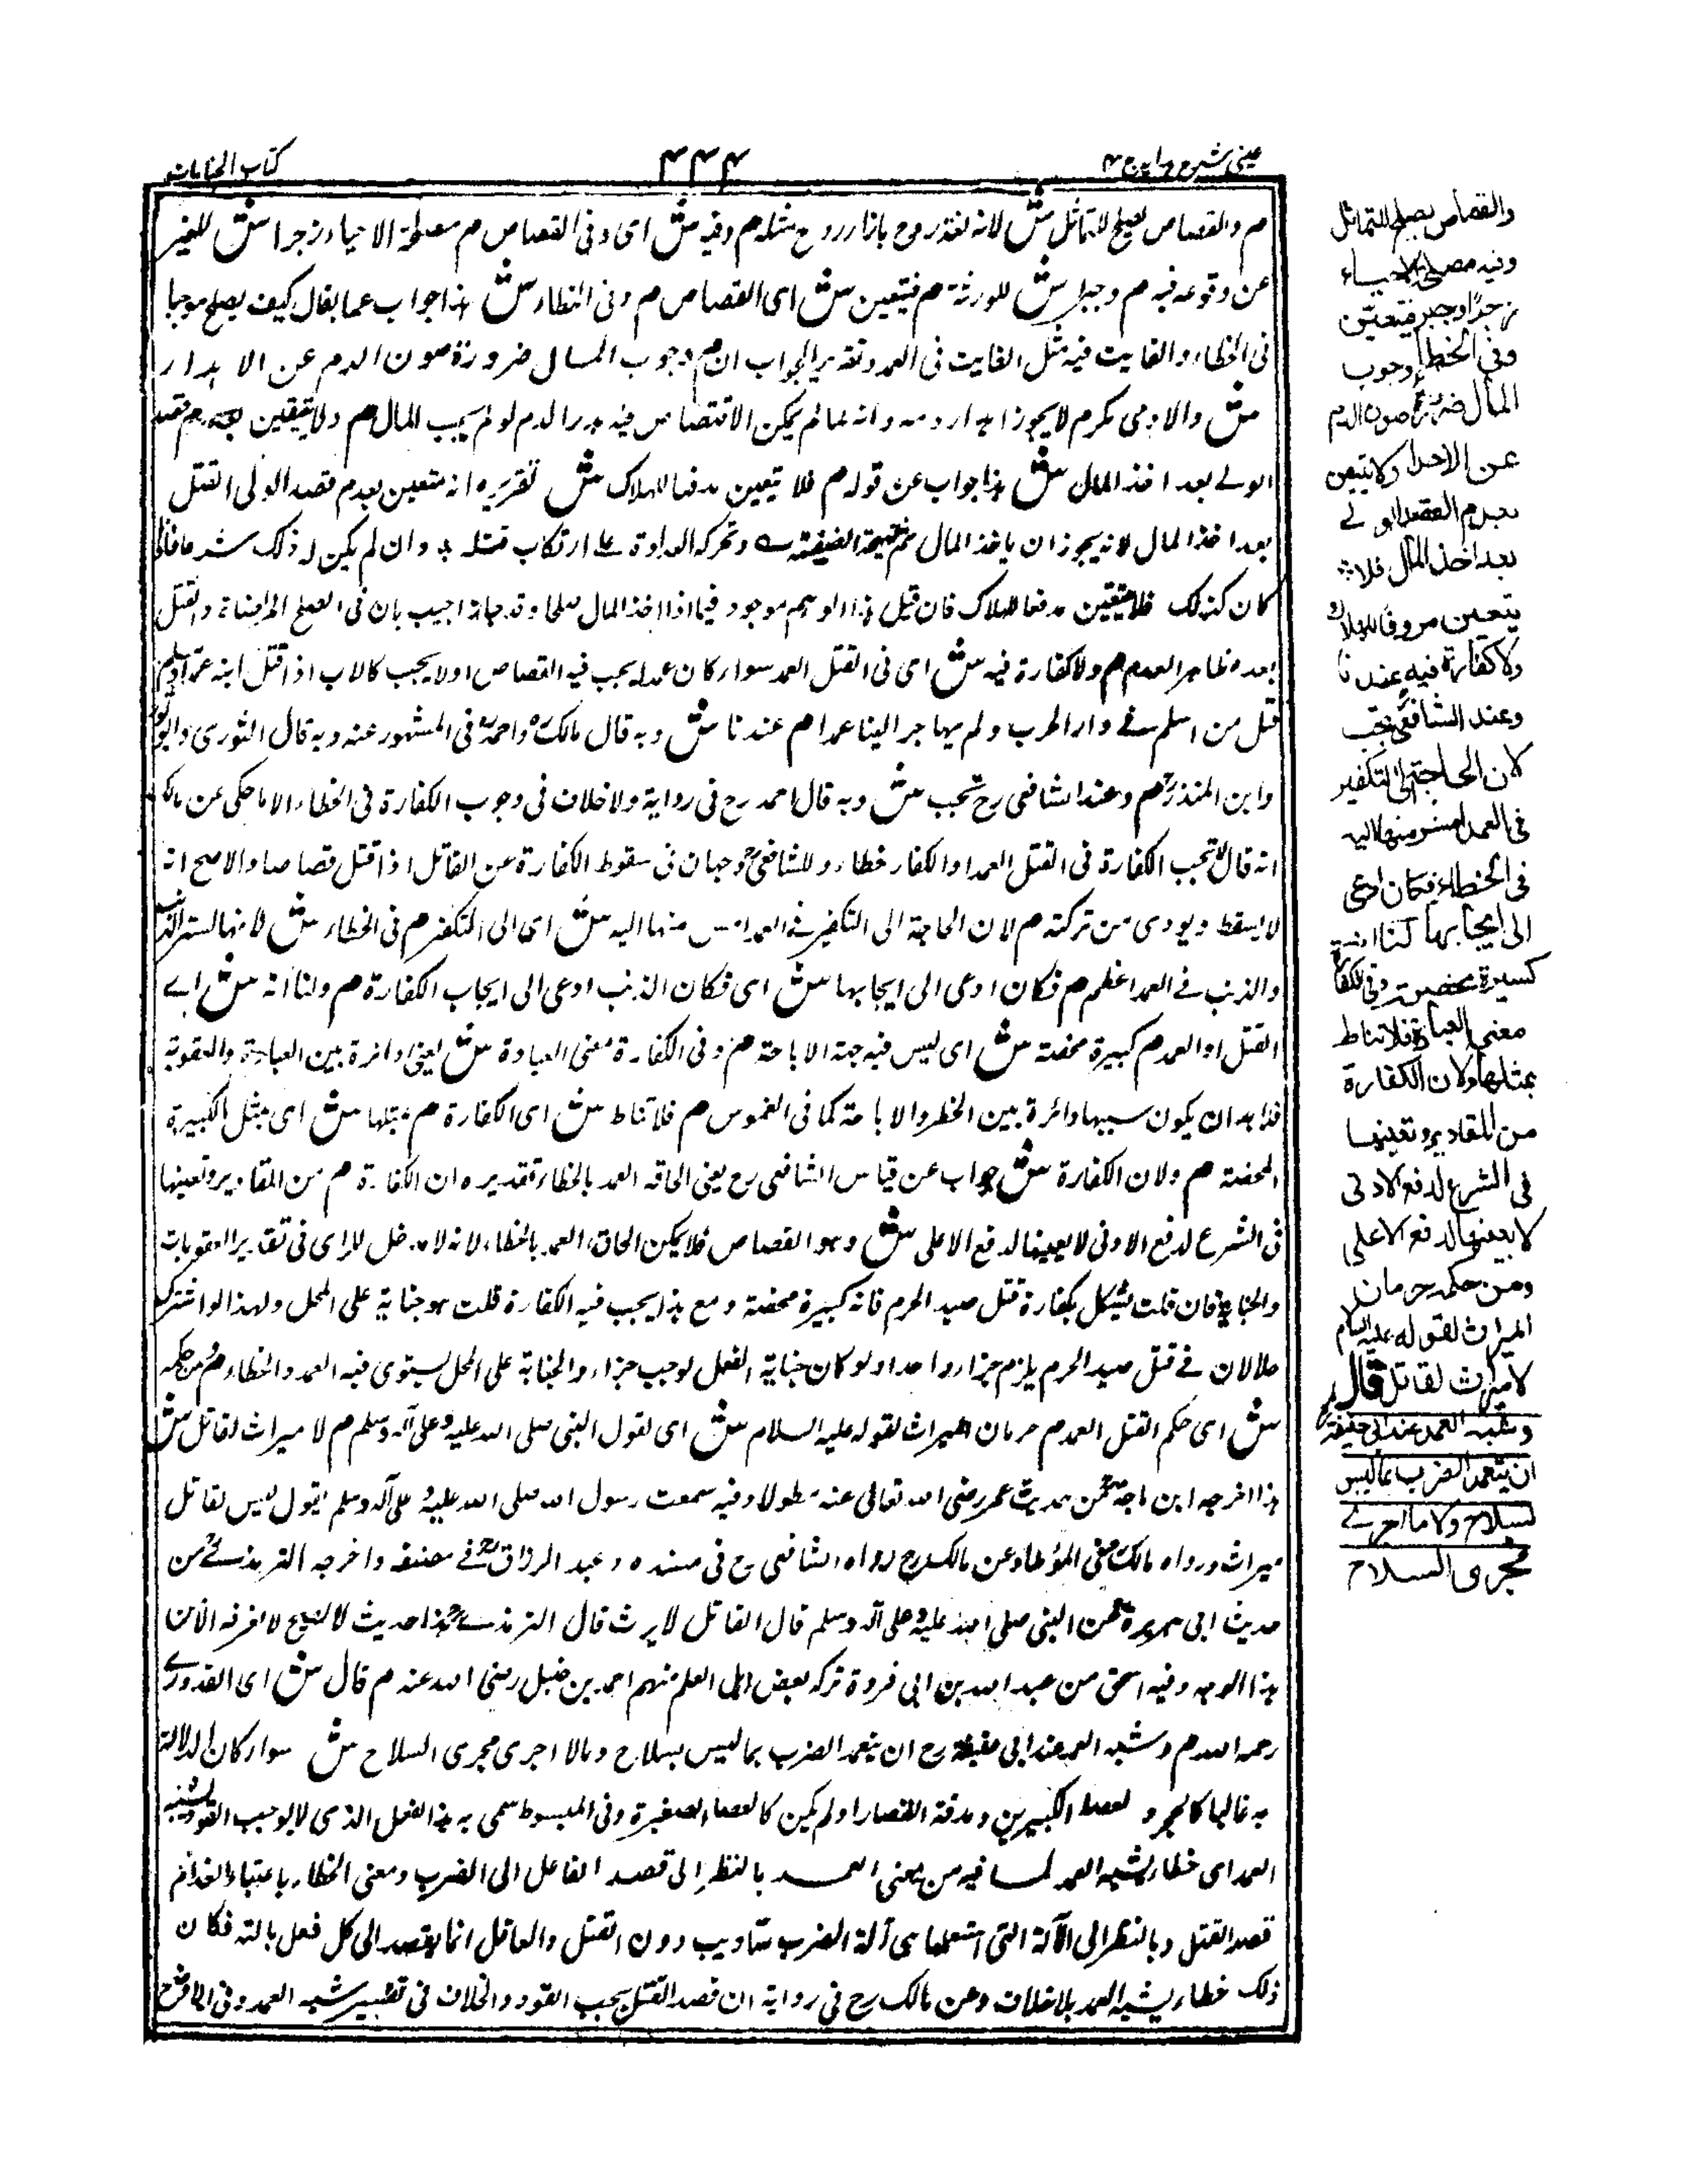 عینی شرح ہدایہ ج ۴
۴۴۴
کتاب الجنایات
م والقصاص یصلح للتماثل ش لانہ بازاء روح مثلہ م وفیہ ش ای وفی القصاص م مصلحة الاحیاء زجرا ش للغیر
عن وقوعہ فیہ م وجبرا ش للورثة م فیتعین ش ای القصاص م وفی الخطاء ش ہذا جواب عما یقال کیف یصلح موجبا
فی الخطاء والفایت فیہ مثل الفایت فی العمد وتقریر الجواب ان م وجوب المال ضرورة صون الدم عن الاہدار
ش والادمی مکرم لا یجوز اہدار دمہ وانہ لما لم یمکن الاقتصاص فیہ ہدر الدم لو لم یجب المال م ولا یتیقن بعدم قصد
الولے بعد اخذ المال ش ہذا جواب عن قولہ م فلا یتعین مدفعا للہلاک ش تقریرہ انہ متعین بعدم قصد الولی القتل
بعد اخذ المال لانہ یجوز ان یاخذ المال وتحرکہ العداوة علی ارتکاب قتلہ وان لم یکن لہ ذلک شرعا فاذا
کان کذلک فلا یتعین مدفعا للہلاک فان قیل ہذا الوہم موجود فیما اذا اخذ المال صلحا وقد جاز اجیب بان فی الصلح المراضاة والقتل
بعدہ ظاہر العدم م ولا کفارة فیہ ش ای فی القتل العمد سواء کان عمدا یجب فیہ القصاص اولا یجب کالاب اذا قتل ابنہ عمدا
قتل من اسلم فے دار الحرب ولم یہاجر الینا عمدا م عندنا ش وبہ قال مالک واحمد فی المشہور عنہ وبہ قال الثوری وابو ثور
وابن المنذر م وعند الشافعی رح تجب ش وبہ قال احمد رح فی روایة ولا خلاف فی وجوب الکفارة فی الخطاء الا ما حکی عن مالک
انہ قال لا تجب الکفارة فی القتل العمد او الکفار خطاء وللشافعی وجہان فی سقوط الکفارة عن القاتل اذا قتل قصاصا والاصح انہ
لا یسقط ویودی من ترکتہ م لان الحاجة الی التکفیر فے العمد امس منہا الیہ ش ای الی التکفیر م فی الخطاء ش لانہا لستر الذنب
والذنب فے العمد اعظم م فکان ادعی الی ایجابہا ش ای فکان الذنب ادعی الی ایجاب الکفارة م ولنا انہ ش اے
القتل او العمد م کبیرة محضة ش ای لیس فیہ جہة الاباحة م وفی الکفارة معنی العبادة ش یعنی دائرة بین العبادة والعقوبة
فلا بد ان یکون سببہا دائرة بین الحظر والاباحة کما فی الغموس م فلا تناط ش ای الکفارة م بمثلہا ش ای بمثل الکبیرة
المحضة م ولان الکفارة ش جواب عن قیاس الشافعی رح یعنی الحاقہ العمد بالخطاء تقدیرہ ان الکفارة م من المقادیر وتعینہا
فی الشرع لدفع الادنی لا یعینہا لدفع الاعلی ش وہو القصاص فلا یمکن الحاق العمد بالخطاء لانہ لا مدخل للرای فی تقدیر العقوبات
والجنایة فان قلت یشکل بکفارة قتل صید الحرم فانہ کبیرة محضة ومع ہذا یجب فیہ الکفارة قلت ہو جنایة علی المحل ولہذا لو اشترک
حلالان فے قتل صید الحرم یلزم جزاء واحد ولو کان جنایة الفعل لوجب جزاء والجنایة علی المحل یستوی فیہ العمد والخطاء م ومن حکمہ
ش ای حکم القتل العمد م حرمان المیراث لقولہ علیہ السلام ش ای لقول النبی صلی اللہ علیہ وعلی آلہ وسلم م لا میراث لقاتل ش
ہذا اخرجہ ابن ماجة عن حدیث عمر رضی اللہ تعالی عنہ مطولا وفیہ سمعت رسول اللہ صلی اللہ علیہ وعلی آلہ وسلم یقول لیس لقاتل
میراث ورواہ مالک فی المؤطا وعن مالک رح رواہ الشافعی رح فی مسندہ وعبد الرزاق فے مصنفہ واخرجہ الترمذے من
حدیث ابی ہریرة عن النبی صلی اللہ علیہ وعلی آلہ وسلم قال القاتل لا یرث قال الترمذے ہذا حدیث لا یصح لا نعرفہ الا من
ہذا الوجہ وفیہ اسحق من عبد اللہ بن ابی فروة ترکہ بعض اہل العلم منہم احمد بن حنبل رضی اللہ عنہ م قال ش ای القدورے
رحمہ اللہ م وشبہ العمد عند ابی حنیفة رح ان یتعمد الضرب بما لیس بسلاح وما لا اجری مجری السلاح ش سواء کان الہلاک
بہ غالبا کالحجر والعصا الکبیرین ومدقة القصار او لم یکن کالعصاء الصغیرة وفی المبسوط سمی بہ ہذا الفعل الذی لا یوجب القود شبہ
العمد ای خطاء یشبہ العمد لما فیہ من معنی العمد بالنظر الی قصد الفاعل الی الضرب ومعنی الخطاء باعتبار انعدام
قصد القتل وبالنظر الی الآلة التی استعملہا ہی آلة الضرب تادیب دون القتل والعاقل انما یقصد الی کل فعل بالتہ فکان
ذلک خطاء یشبہ العمد بلا خلاف وعن مالک رح فی روایة ان قصد القتل یجب القود والخلاف فی تفسیر شبہ العمد وفی
والقصاص یصلح للتماثل
وفیہ مصلحة الاحیاء
زجرا وجبرا فیتعین
وفی الخطإ وجوب
المال ضرورة صون الدم
عن الاهدار ولا یتیقن
بعدم القصد الولے
بعد اخذ المال فلا
یتعین مدفعا للهلاك
ولا کفارة فیه عندنا
وعند الشافعی تجب
لان الحاجة الی التکفیر
فی العمد امس منها الیه
فی الخطاء فکان ادعی
الی ایجابها ولنا انه
کبیرة محضة وفی الکفارة
معنی العبادة فلا تناط
بمثلها ولان الکفارة
من المقادیر وتعینها
فی الشرع لدفع الادنی
لا یعینها لدفع الاعلی
ومن حکمه حرمان
المیراث لقوله علیه السلام
لا میراث لقاتل قال
وشبه العمد عند ابی حنیفة
ان یتعمد الضرب بما لیس
بسلاح ولا ما اجرے
مجری السلاح